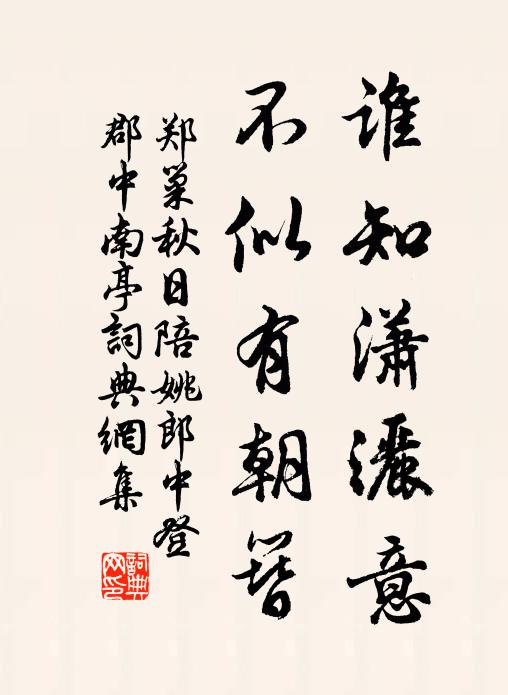 谁知瀟灑意
不似有朝簪
郑巢秋日陪姚郎中登
郡中南亭詞典網集
詞典
网印